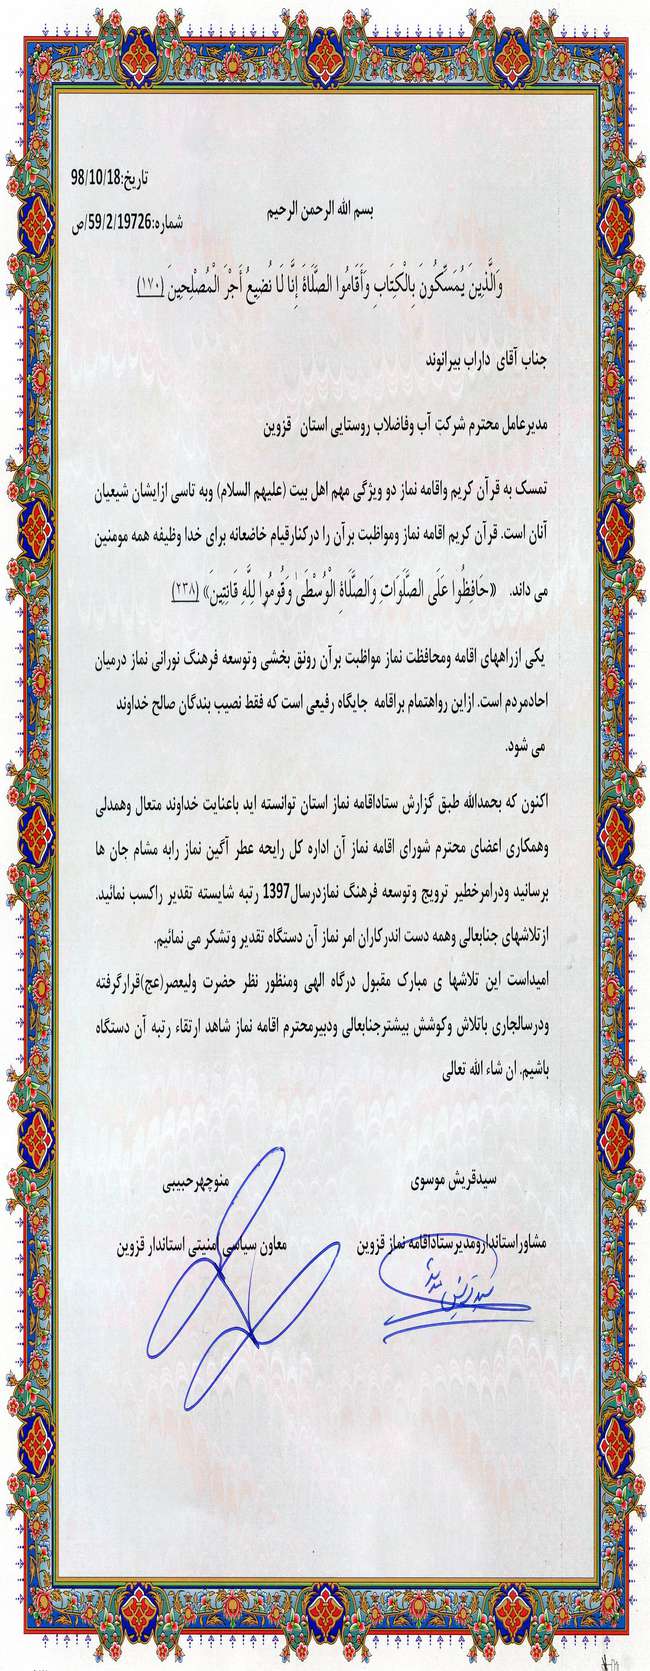 تاریخ:98/10/18
بسم الله الرحمن الرحیم
شماره:59/2/19726/ص
وَالَّذِينَ يُمَسِّكُونَ بِالْكِتَابِ وَأَقَامُوا الصَّلَاةَ إِنَّا لَا نُضِيعُ أَجْرَ الْمُصْلِحِينَ (١٧٠)
جناب آقای داراب بیرانوند
مدیرعامل محترم شرکت آب وفاضلاب روستایی استان قزوین
تمسک به قرآن کریم واقامه نماز دو ویژگی مهم اهل بیت (علیهم السلام) وبه تاسی ازایشان شیعیان
آنان است. قرآن کریم اقامه نماز ومواظبت برآن را درکنارقیام خاضعانه برای خدا وظیفه همه مومنین
می داند. «حَافِظُوا عَلَى الصَّلَوَاتِ وَالصَّلَاةِ الْوُسْطَى وَقُومُوا لِلَّهِ قَانِتِينَ» (٢٣٨)
یکی ازراههای اقامه ومحافظت نماز مواظبت برآن رونق بخشی وتوسعه فرهنگ نورانی نماز درمیان
احادمردم است. ازاین رواهتمام براقامه جایگاه رفیعی است که فقط نصیب بندگان صالح خداوند
می شود.
اکنون که بحمدالله طبق گزارش ستاداقامه نماز استان توانسته اید باعنایت خداوند متعال وهمدلی
وهمکاری اعضای محترم شورای اقامه نماز آن اداره کل رایحه عطر آگین نماز رابه مشام جان ها
برسانید ودرامرخطیر ترویج وتوسعه فرهنگ نمازدرسال1397 رتبه شایسته تقدیر راکسب نمائید.
ازتلاشهای جنابعالی وهمه دست اندرکاران امر نماز آن دستگاه تقدیر وتشکر می نمائیم.
امیداست این تلاشها ی مبارک مقبول درگاه الهی ومنظور نظر حضرت ولیعصر(عج)قرارگرفته
ودرسالجاری باتلاش وکوشش بیشترجنابعالی ودبیرمحترم اقامه نماز شاهد ارتقاء رتبه آن دستگاه
باشیم. ان شاء الله تعالی
سیدقریش موسوی منوچهرحبیبی
مشاوراستاندارومدیرستاداقامه نماز قزوین معاون سیاسی امنیتی استاندار قزوین